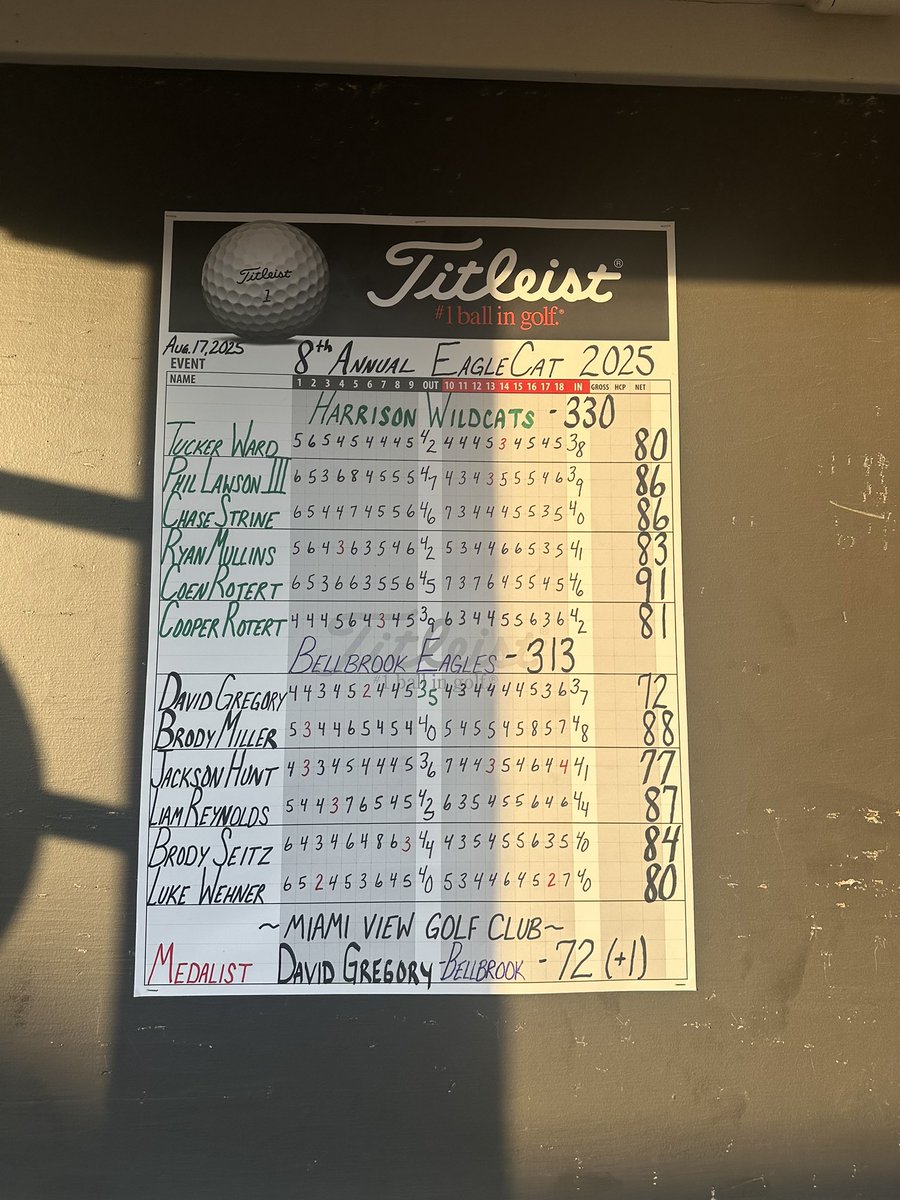 Titleist
1
Titleist®
#1 ball in golf.®
Aug. 17, 2025
EVENT 8th ANNUAL EAGLECAT 2025
NAME 1 2 3 4 5 6 7 8 9 OUT 10 11 12 13 14 15 16 17 18 IN GROSS HCP NET
HARRISON WILDCATS - 330
TUCKER WARD 5 6 5 4 5 4 4 4 5 42 4 4 4 5 3 4 5 4 5 38 80
PHIL LAWSON III 6 5 3 6 8 4 5 5 5 47 4 3 4 3 5 5 5 4 6 39 86
CHASE STRINE 6 5 4 4 7 4 5 5 6 46 7 3 4 4 4 5 5 3 5 40 86
RYAN MULLINS 5 6 4 3 6 3 5 4 6 42 5 3 4 4 6 6 5 3 5 41 83
COEN ROTERT 6 5 3 6 6 3 5 5 6 45 7 3 7 6 4 5 5 4 5 46 91
COOPER ROTERT 4 4 4 5 6 4 3 4 5 39 6 3 4 4 5 5 6 3 6 42 81
Titleist
BELLBROOK EAGLES - 313
#1 ball in golf.
DAVID GREGORY 4 4 3 4 5 2 4 4 5 35 4 3 4 4 4 4 5 3 6 37 72
BRODY MILLER 5 3 4 4 6 5 4 5 4 40 5 4 5 5 4 5 8 5 7 48 88
JACKSON HUNT 4 3 3 4 5 4 4 4 5 36 7 4 4 3 5 4 6 4 4 41 77
LIAM REYNOLDS 5 4 4 3 7 6 5 4 5 43 6 3 5 4 5 5 6 4 6 44 87
BRODY SEITZ 6 4 3 4 6 4 8 6 3 44 4 3 5 4 5 5 6 3 5 40 84
LUKE WEHNER 6 5 2 4 5 3 6 4 5 40 5 3 4 4 6 4 5 2 7 40 80
~ MIAMI VIEW GOLF CLUB ~
MEDALIST DAVID GREGORY - BELLBROOK - 72 (+1)